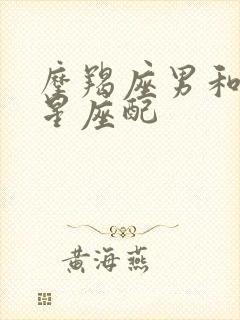 摩羯座男和
星座配
黄海燕